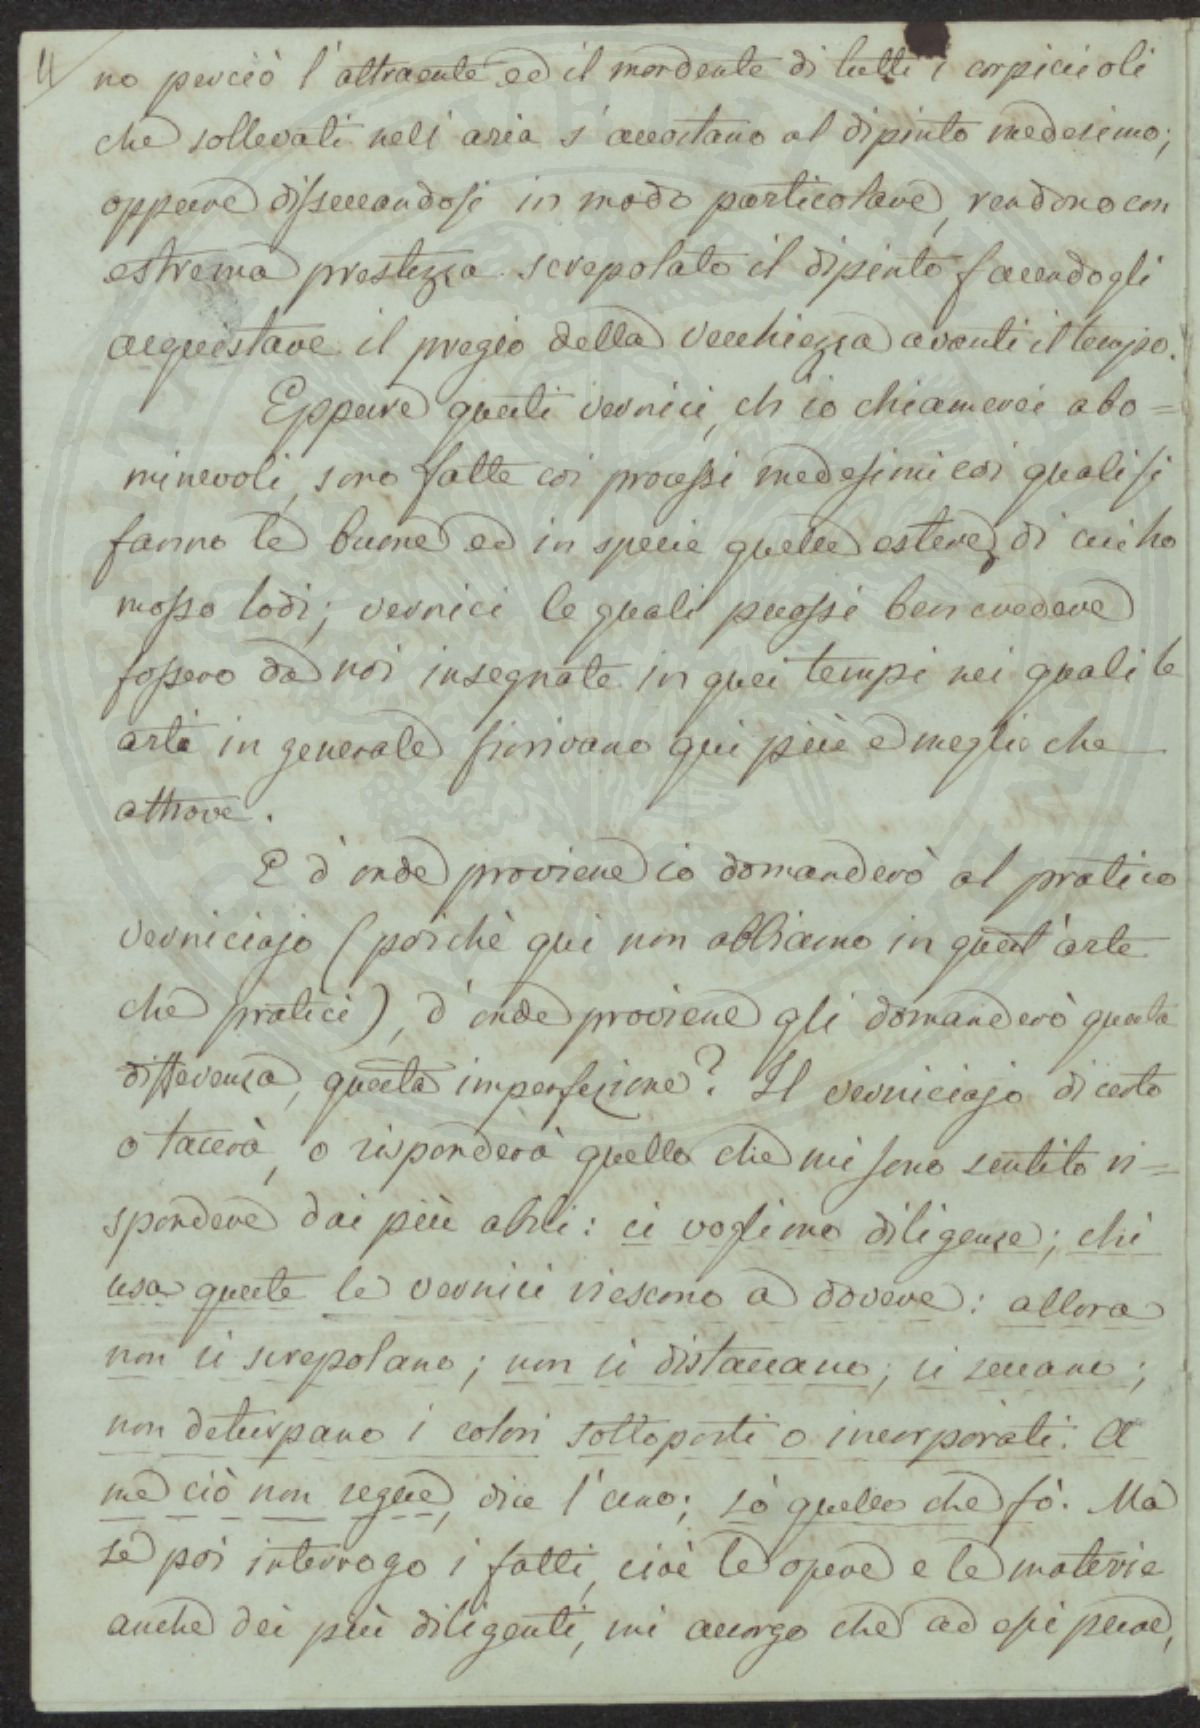 4
no perciò l'attraente ed il mordente di tutti i corpiciuoli
che sollevati nell'aria s'accostano al dipinto medesimo;
oppure disseccandosi in modo particolare, rendono con
estrema prestezza screpolato il dipinto facendogli
acquistare il pregio della vecchiezza avanti il tempo.
Eppure questi vernici, ch'io chiamerei abo=
minevoli, sono fatte coi processi medesimi coi quali si
fanno le buone ed in specie quelle estere, di cui ho
mosso lodi; vernici le quali puossi ben credere
fossero da noi insegnate in quei tempi nei quali le
arti in generale fiorivano qui più e meglio che
altrove.
E d'onde proviene io domanderò al pratico
verniciajo (poichè qui non abbiamo in quest'arte
che pratici), d'onde proviene gli domanderò questa
differenza, questa imperfezione? Il verniciajo di certo
o tacerà, o risponderà quello che mi sono sentito ri=
spondere dai più abili: ci vogliono diligenze; chi
usa queste le vernici riescono a dovere: allora
non si screpolano; non si distaccano; si seccano;
non deturpano i colori sottoposti o incorporati. A
me ciò non segue, dice l'uno; sò quello che fò. Ma
se poi interrogo i fatti, cioè le opere e le materie
anche dei più diligenti, mi accorgo che ad essi pure,